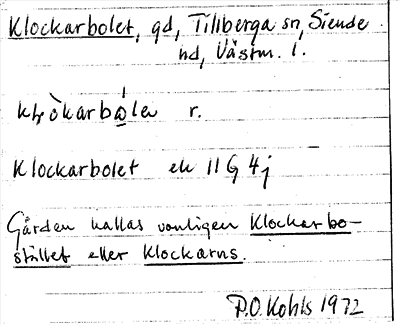 Klockarbolet, gd, Tillberga sn, Siende
hd, Västm. l.
r.
Klockarbolet ek 11 G 4 j
Gården kallas vanligen Klockarbo-
stället eller Klockarns.
P.O. Kohls 1972